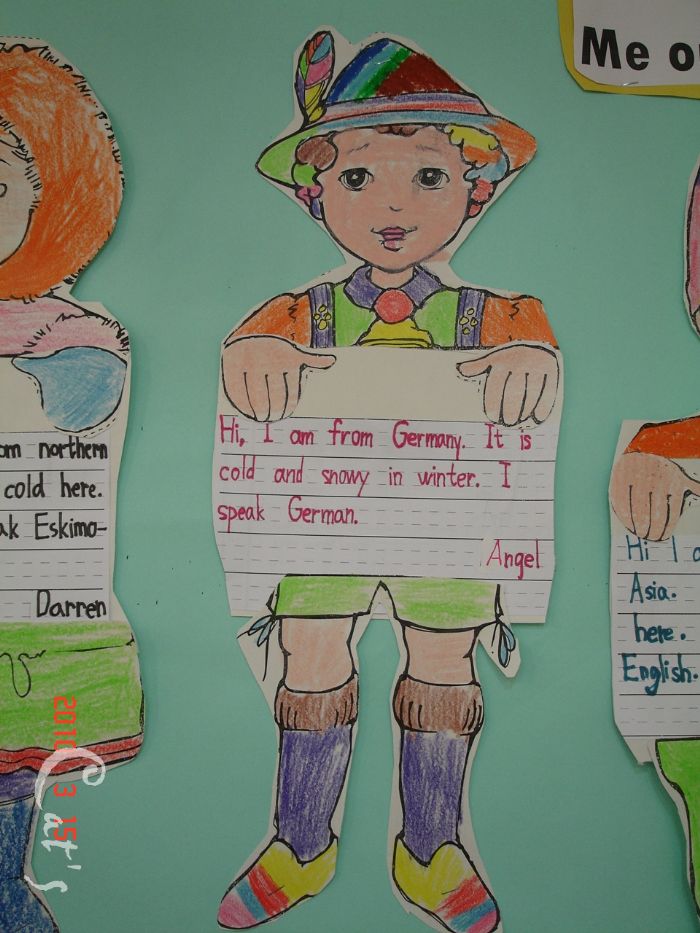 Me o
om northern
cold here.
ak Eskimo-
Darren
Hi, I am from Germany. It is
cold and snowy in winter. I
speak German.
Angel
Hi I a
Asia.
here.
English.
2010 3 15
Cat's